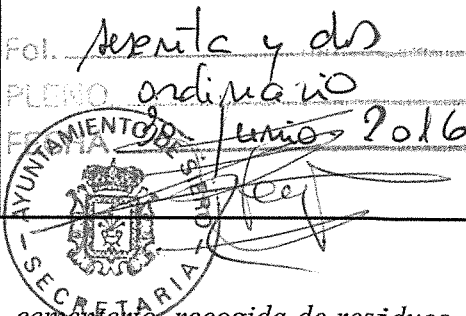 Fol. sesenta y dos
PLENO ordinario
FECHA 30 Junio 2016
AYUNTAMIENTO DE SIERO
SECRETARIA
cementerio, recogida de residuos